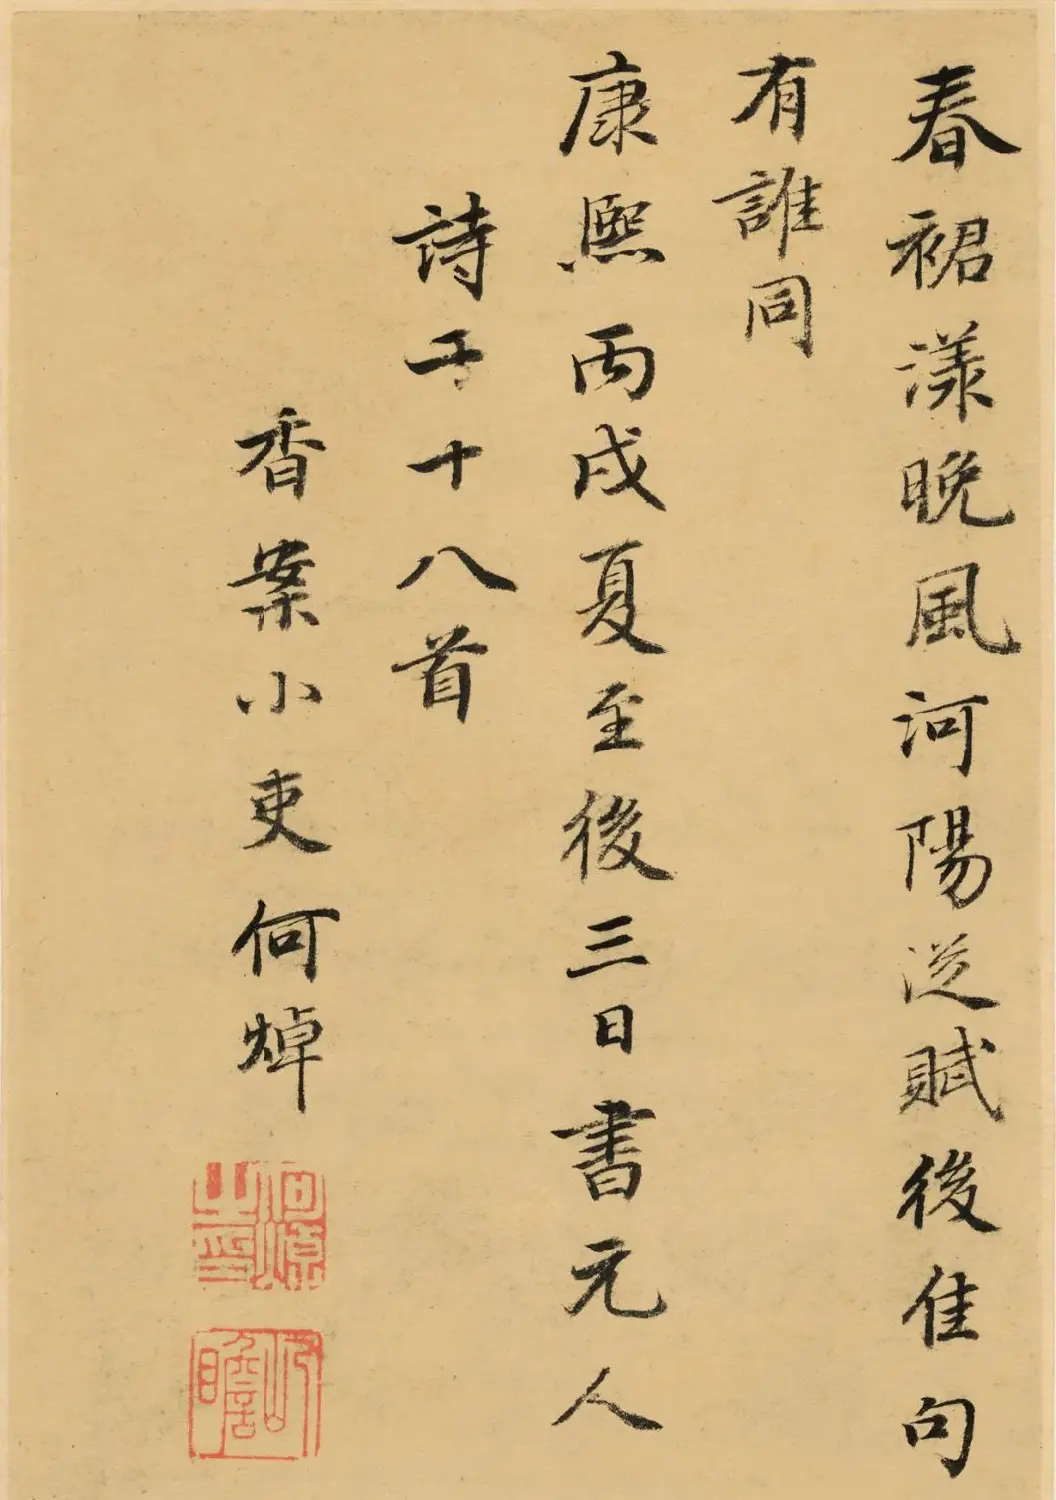 春裙漾晚風河陽從賦後佳句
有誰同
康熙丙戌夏至後三日書元人
詩十八首
香案小吏何焯
何焯之印
屺瞻